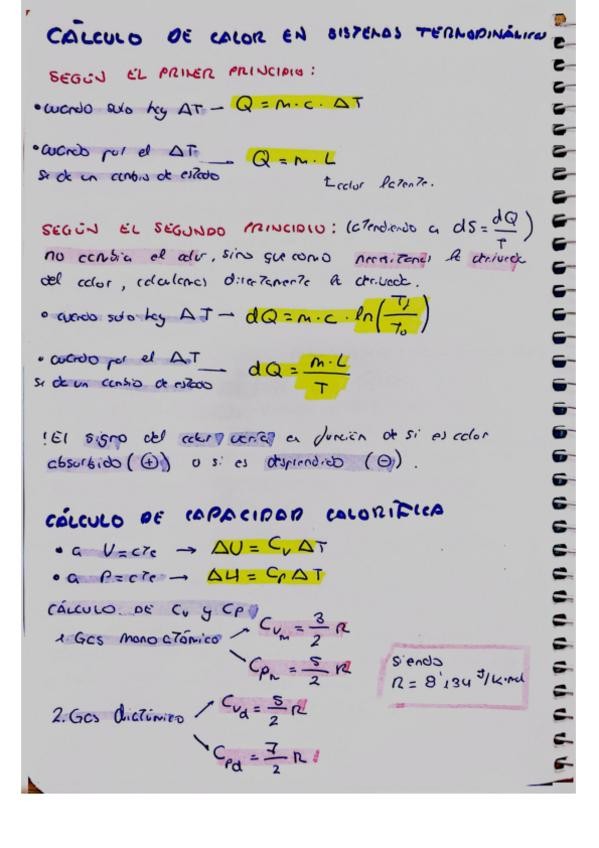 CÁLCULO DE CALOR EN SISTEMAS TERMODINÁMICOS
SEGÚN EL PRIMER PRINCIPIO:
• cuando solo hay ΔT — Q = m · c · ΔT
• cuando por el ΔT — Q = m · L
se de un cambio de estado
↑ calor latente.
SEGÚN EL SEGUNDO PRINCIPIO: (atendiendo a dS = dQ/T)
no cambia el calor, sino que como necesitamos la
del calor, calculamos directamente la
• cuando solo hay ΔT → dQ = m · c · ln(T₁/T₀)
• cuando por el ΔT — dQ = m·L/T
se de un cambio de estado
!El signo del calor varía en función de si es calor
absorbido (+) o si es desprendido (−).
CÁLCULO DE CAPACIDAD CALORÍFICA
• a V = cte → ΔU = Cv ΔT
• a P = cte → ΔH = Cp ΔT
CÁLCULO DE Cv y Cp
1. Gas monoatómico
Cvm = 3/2 R
Cpm = 5/2 R
siendo
R = 8'134 J/K·mol
2. Gas diatómico
Cvd = 5/2 R
Cpd = 7/2 R